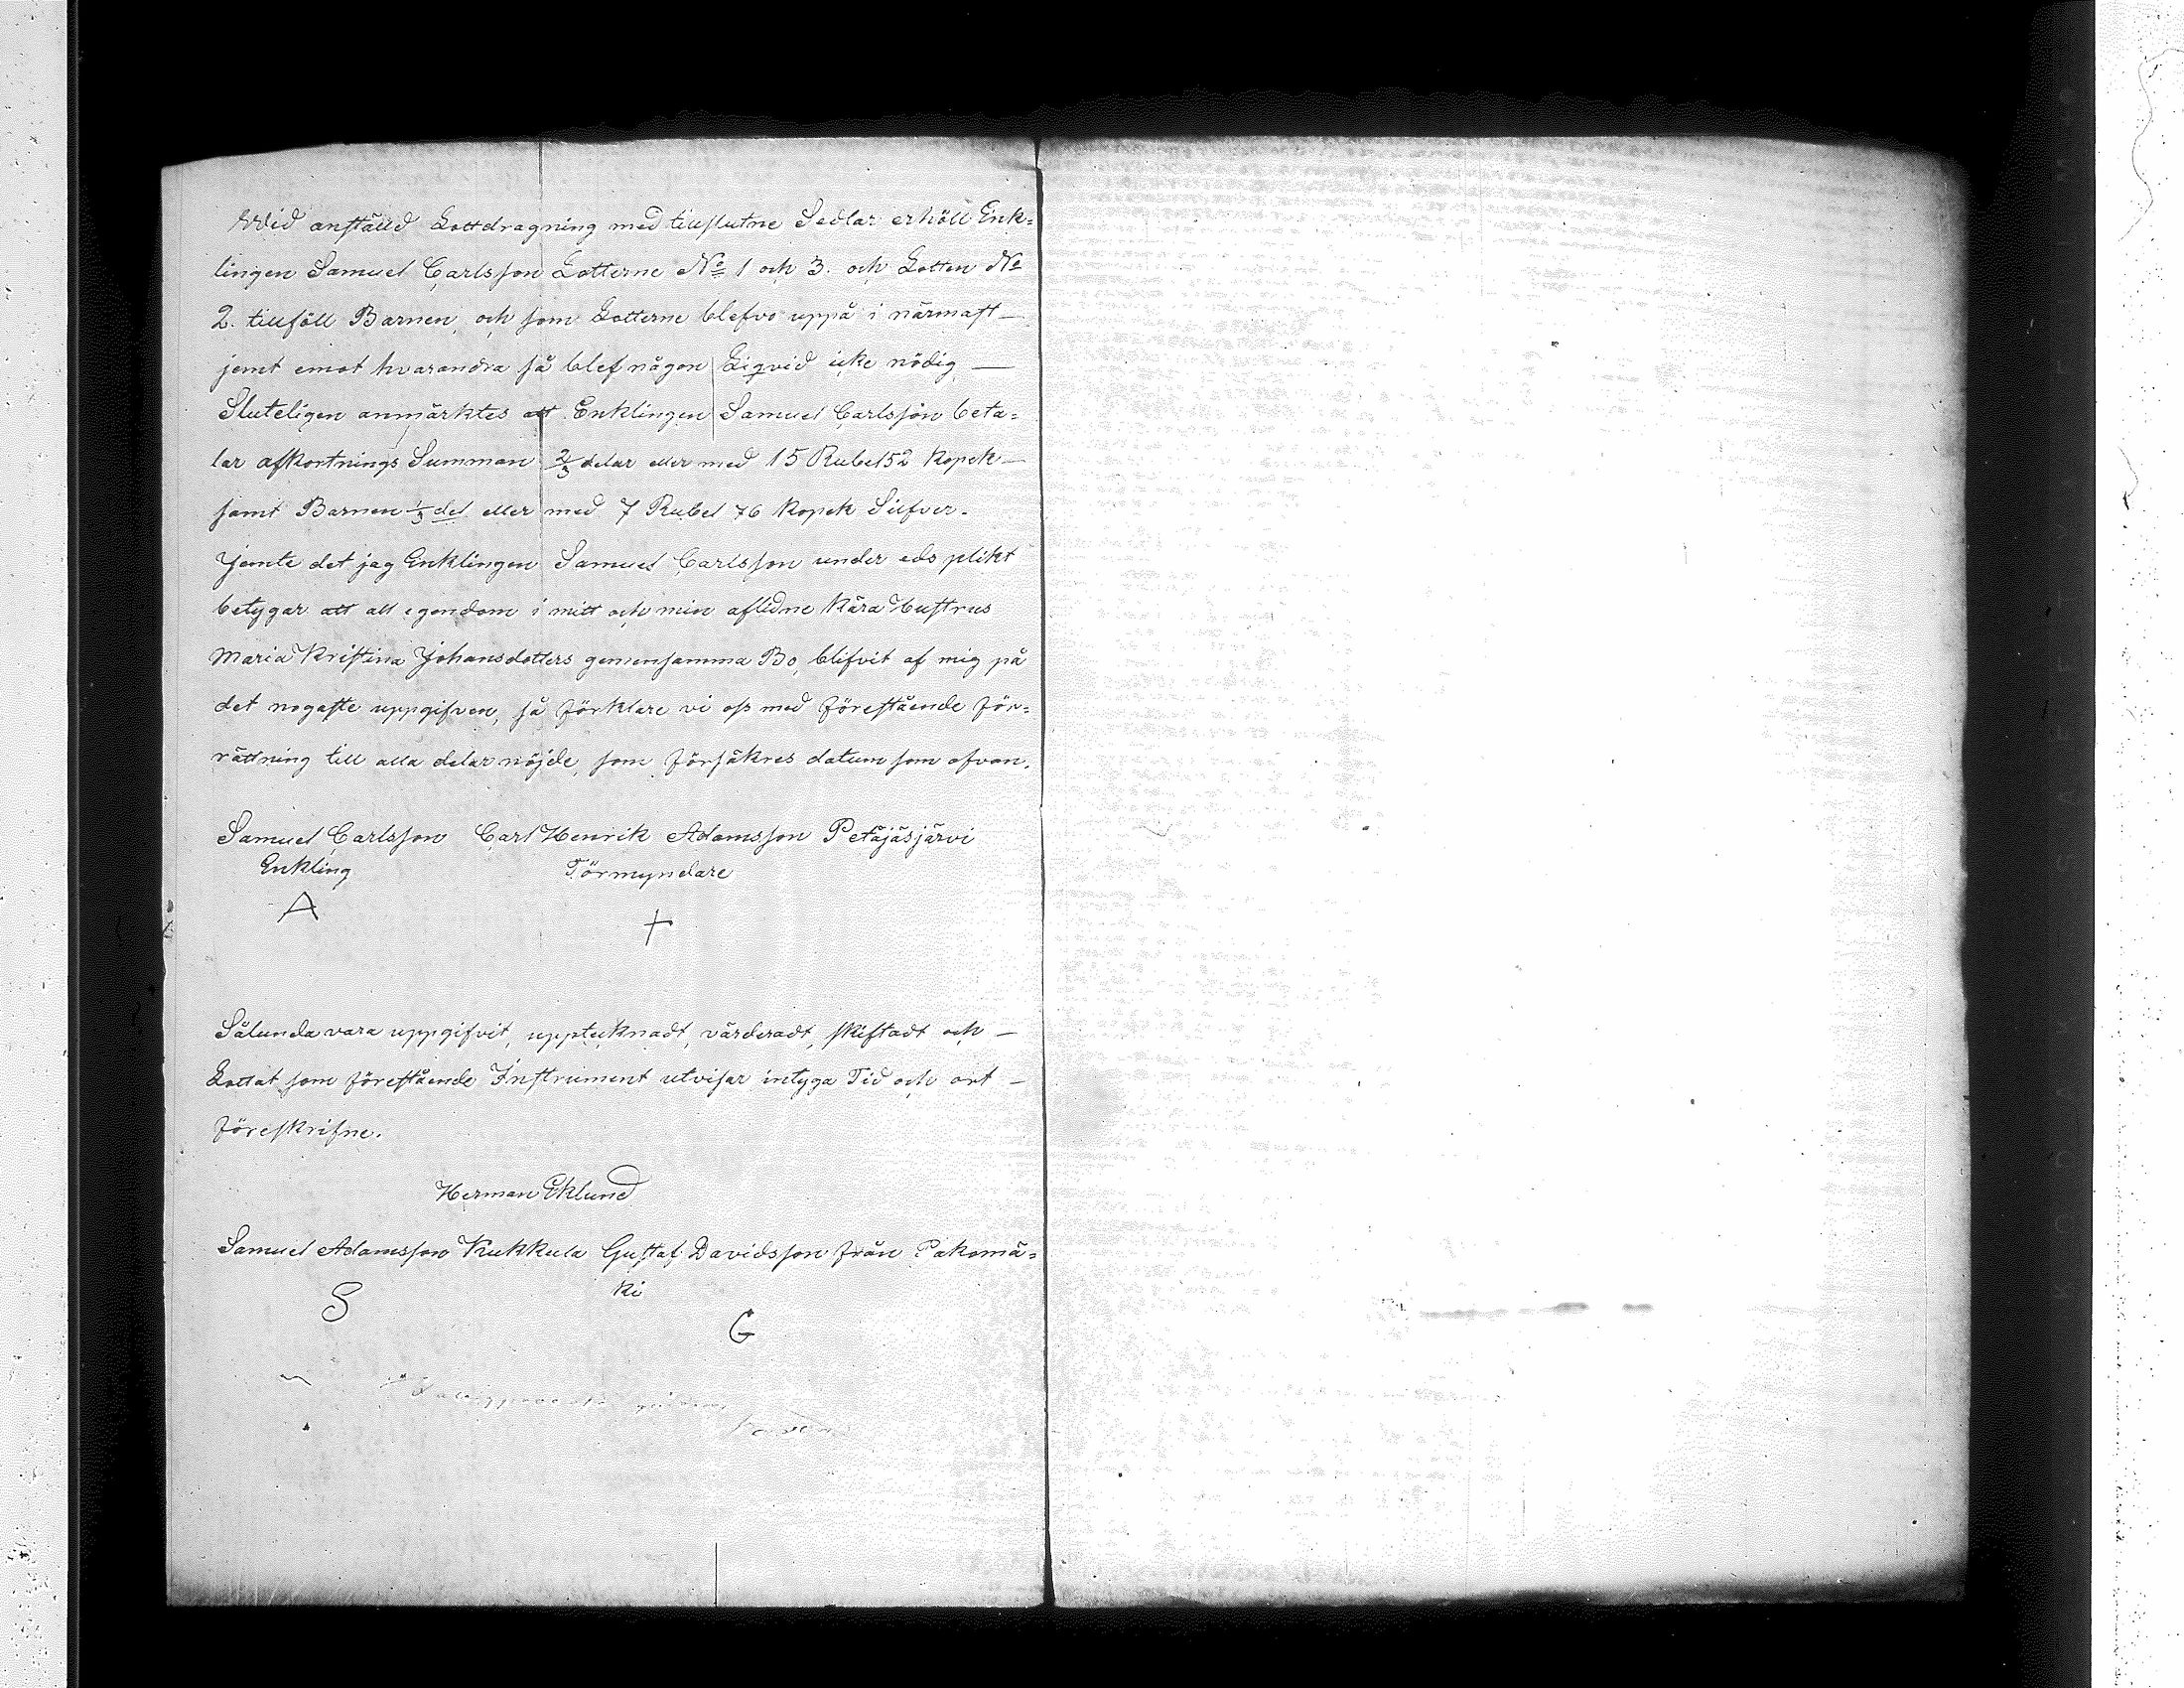 Wid anställd Lottdragning med tillslutne Sedlar erhöll Enk=
lingen Samuel Carlsson Lotterne No 1 och 3. och Lotten No
2. tillföll Barnen, och som Lotterne blefvo uppå i närmast —
jemt emot hvarandra så blef någon Liqvid icke nödig —
Sluteligen anmärktes att Enklingen Samuel Carlsson beta=
lar afkortnings Summan 2/3 delar eller med 15 Rubel 52 Kopek —
samt Barnen 1/3 del eller med 7 Rubel 76 Kopek Silfver.
Jemte det jag Enklingen Samuel Carlsson under eds plikt
betygar att all egendom i mitt och min aflidne Kära Hustrus
Maria Kristina Johansdotters gemensamma Bo, blifvit af mig på
det nogaste uppgifven, så förklare vi oss med förestående för=
rättning till alla delar nöjde, som försäkres datum som ofvan.
Samuel Carlsson Carl Henrik Adamsson Petäjäsjärvi
Enkling Förmyndare
A +
Sålunda vara uppgifvit, upptecknadt, värderadt, skiftadt och —
Lottat som förestående Instrument utvisar intyga Tid och ort —
föreskrifne.
Herman Eklund
Samuel Adamsson Kukkula Gustaf Davidsson från Pakomä=
ki
S G